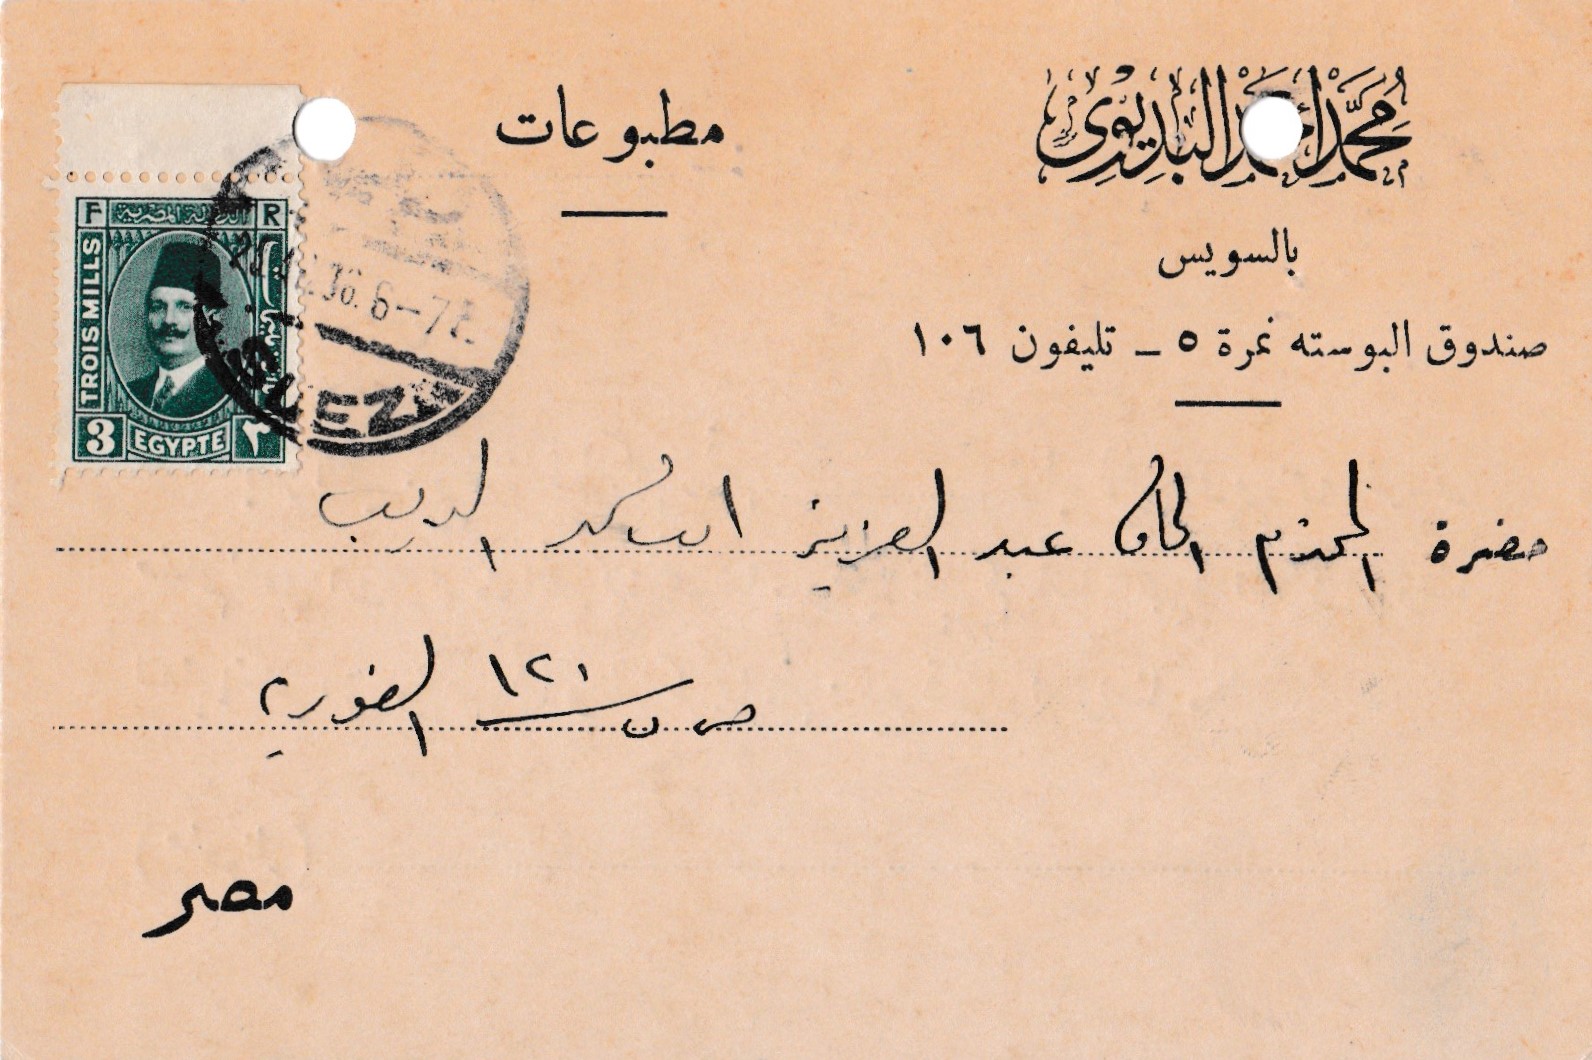 محمد أحمد البديوى
مطبوعات
بالسويس
صندوق البوسته نمرة ٥ – تليفون ١٠٦
F الدولة المصرية R
TROIS MILLS
3 EGYPTE ٣
36. 6-7 P.
SUEZ
حضرة المحترم الحاج عبد العزيز الديب
ص ن ١٢١ الغورية
مصر